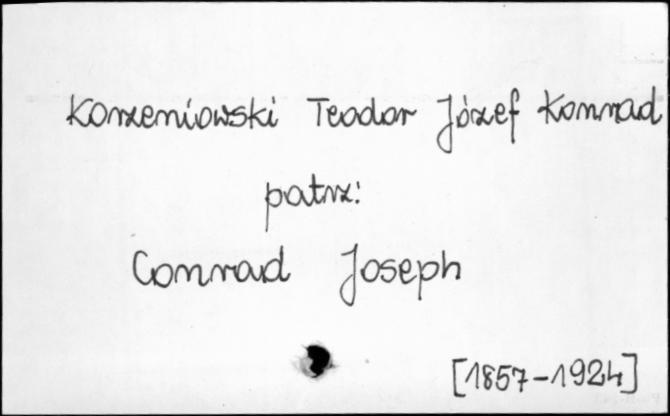 Korzeniowski Teodor Józef Konrad
patrz:
Conrad Joseph
[1857-1924]